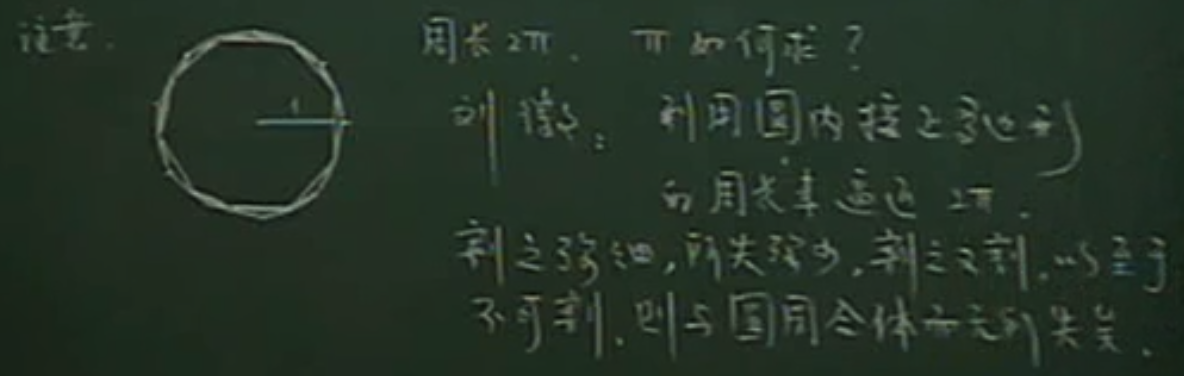 注意.
1
周长2π. π如何求?
刘徽: 利用圆内接正多边形
的周长来逼近 2π.
割之弥细,所失弥少,割之又割,以至于
不可割,则与圆周合体而无所失矣.